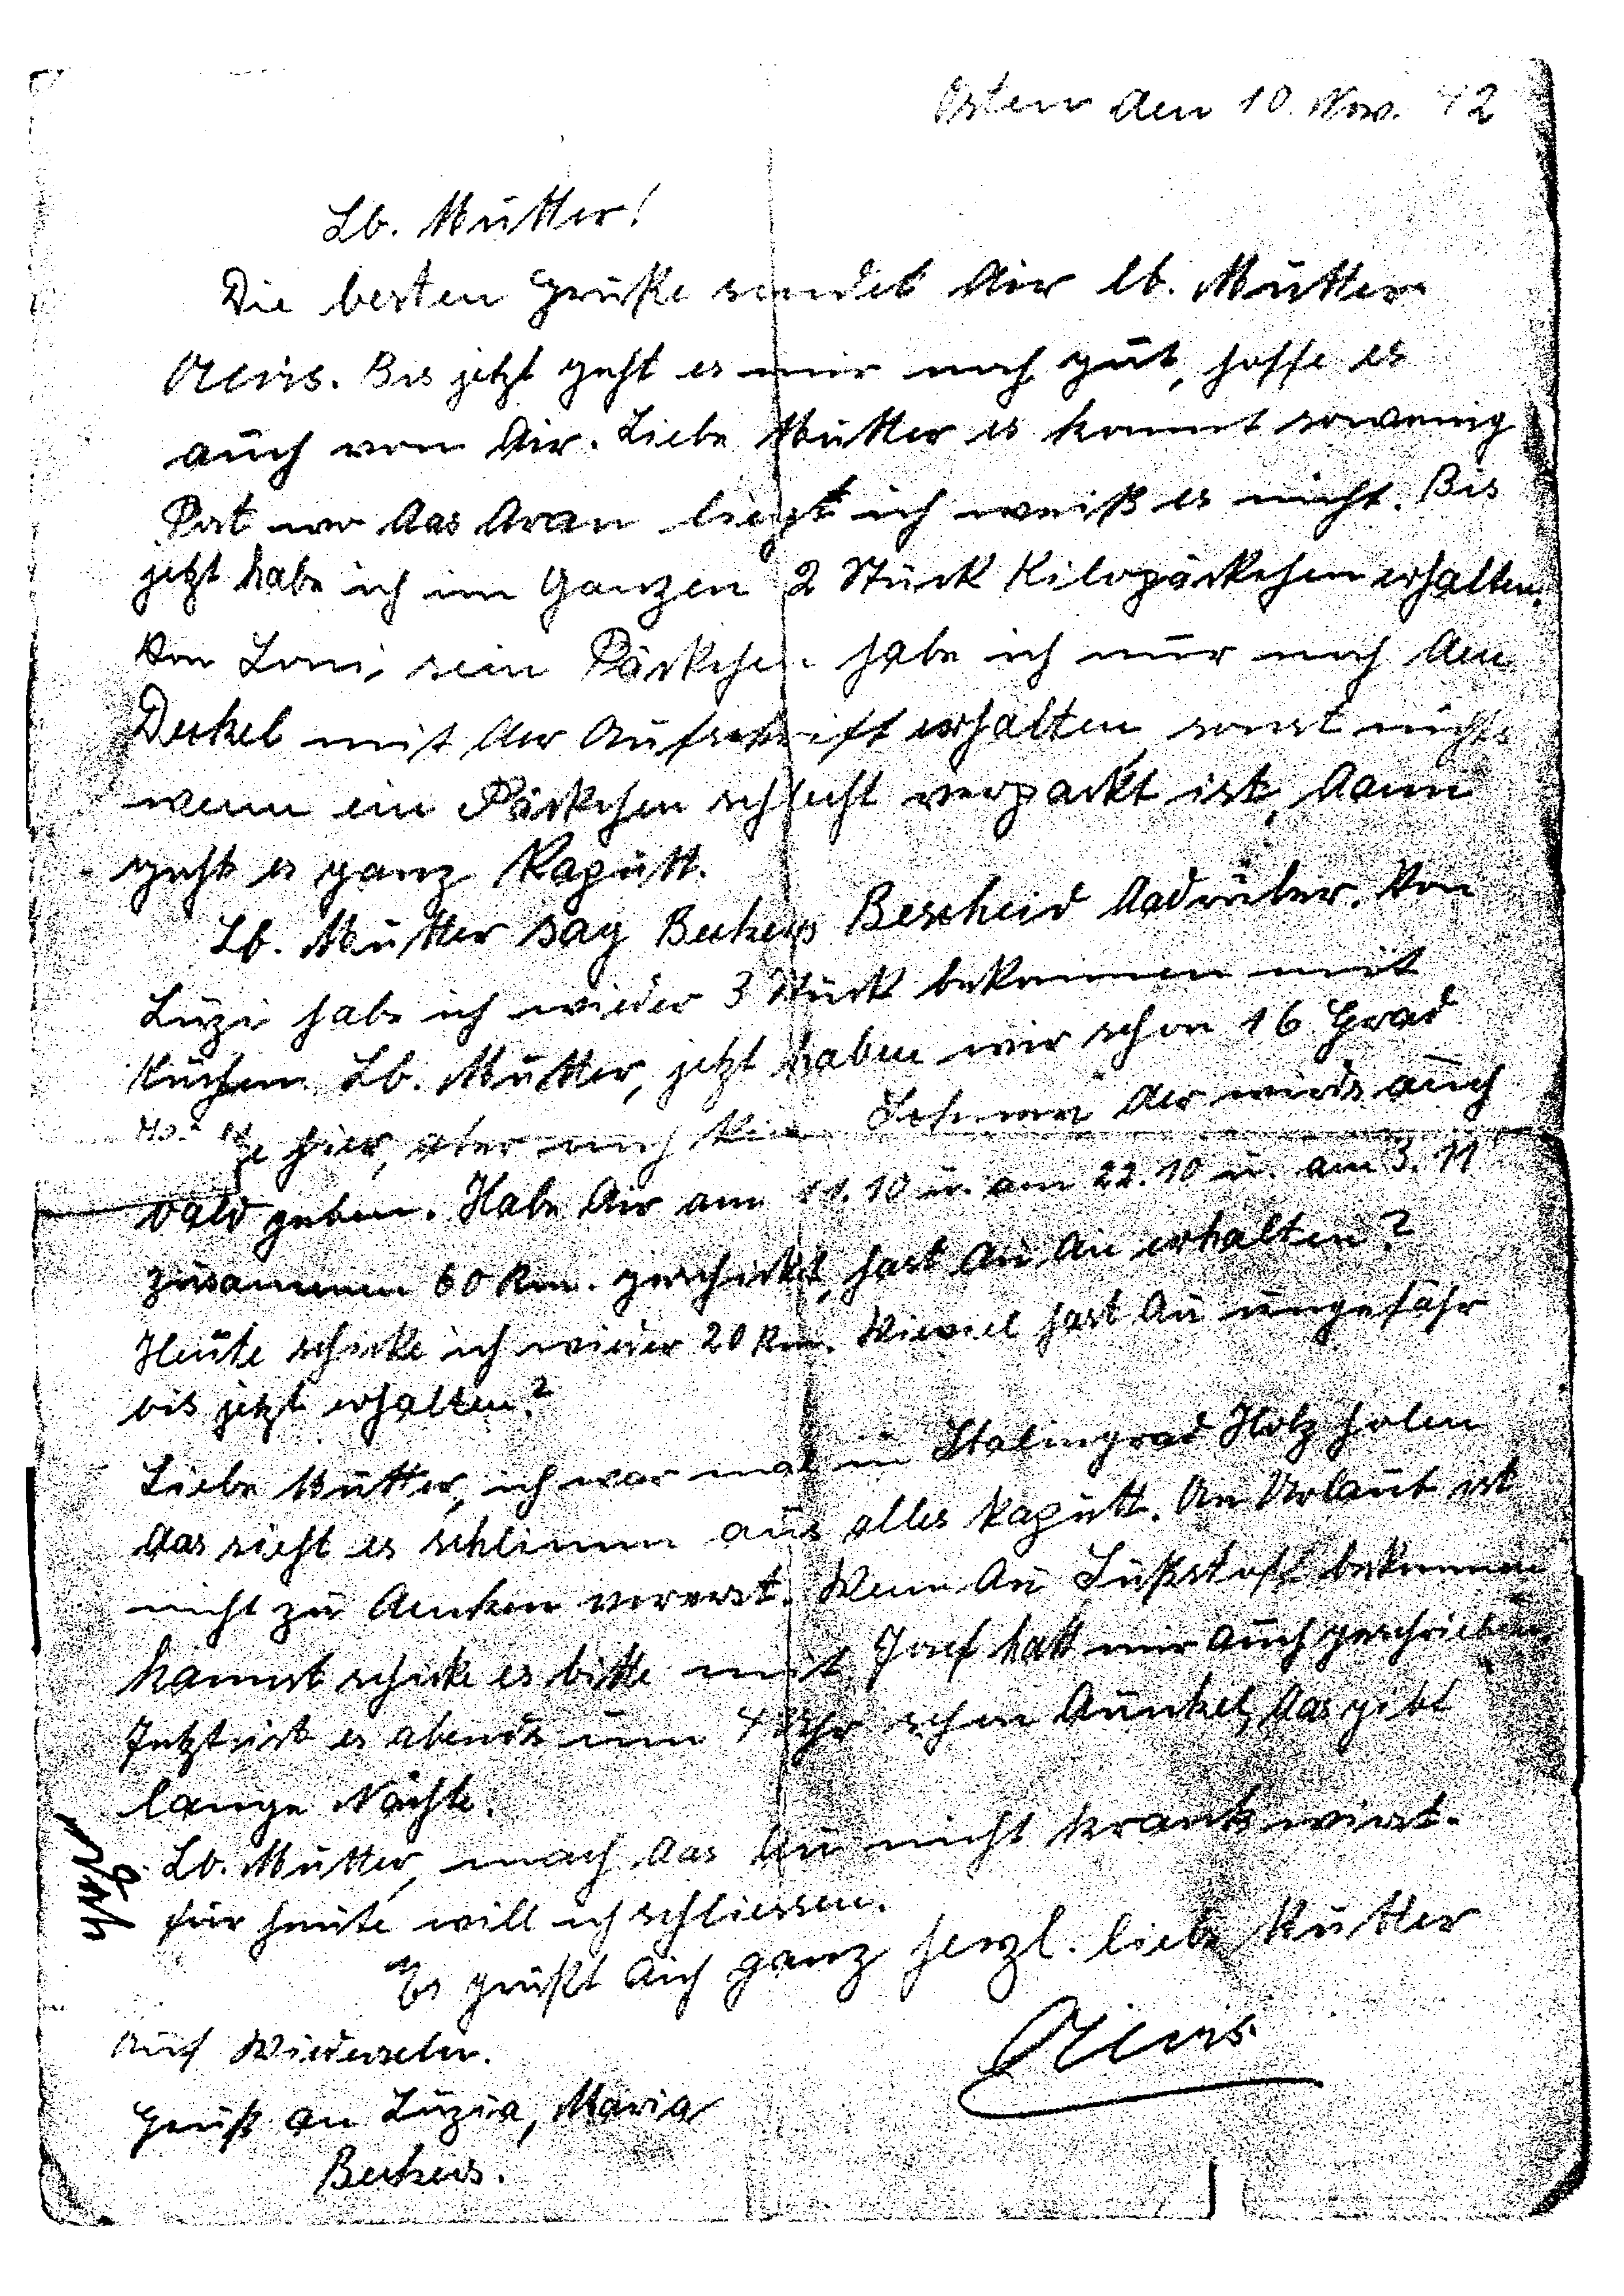 Osten den 10. Nov. 42
Lb. Mutter!
Die besten Grüße sendet dir lb. Mutter
Alois. Bis jetzt geht es mir noch gut, hoffe es
auch von dir. Liebe Mutter es kommt sowenig
Post wo das dran liegt ich weiß es nicht. Bis
jetzt habe ich im Ganzen 2 Stück Kilopäckchen erhalten.
Von Loni, sein Päckchen habe ich nur noch den
Deckel mit der Aufschrift erhalten, sonst nichts
wenn ein Päckchen schlecht verpackt ist, dann
geht es ganz kaputt.
Lb. Mutter sag Beckers Bescheid dadrüber. Von
Luzi habe ich wieder 3 Stück bekommen mit
Kuchen. Lb. Mutter, jetzt haben wir schon 16 Grad
hier, aber noch kein Schnee der wirds auch
bald geben. Habe dir am 11.10 u. am 22.10 u. am 3. 11
zusammen 60 Rm. geschickt, hast du die erhalten?
Heute schicke ich wieder 20 Rm. Wieviel hast du ungefähr
bis jetzt erhalten?
Liebe Mutter, ich war mal in Stalingrad Holz holen
das sieht es schlimm aus alles kaputt. An Urlaub ist
nicht zu denken vorerst. Wenn du Süßstoff bekommen
kannst schicke es bitte mit. Josef hatt mir auch geschrieben.
Jetzt ist es abends um 4 Uhr schon dunkel, das gibt
lange Nächte.
Lb. Mutter, mach das du nicht krank wirst.
für heute will ich schliessen.
Es grüßt dich ganz herzl. liebe Mutter
Alois
Auf Wiedersehn.
Gruß an Luzia, Maria
Beckers.